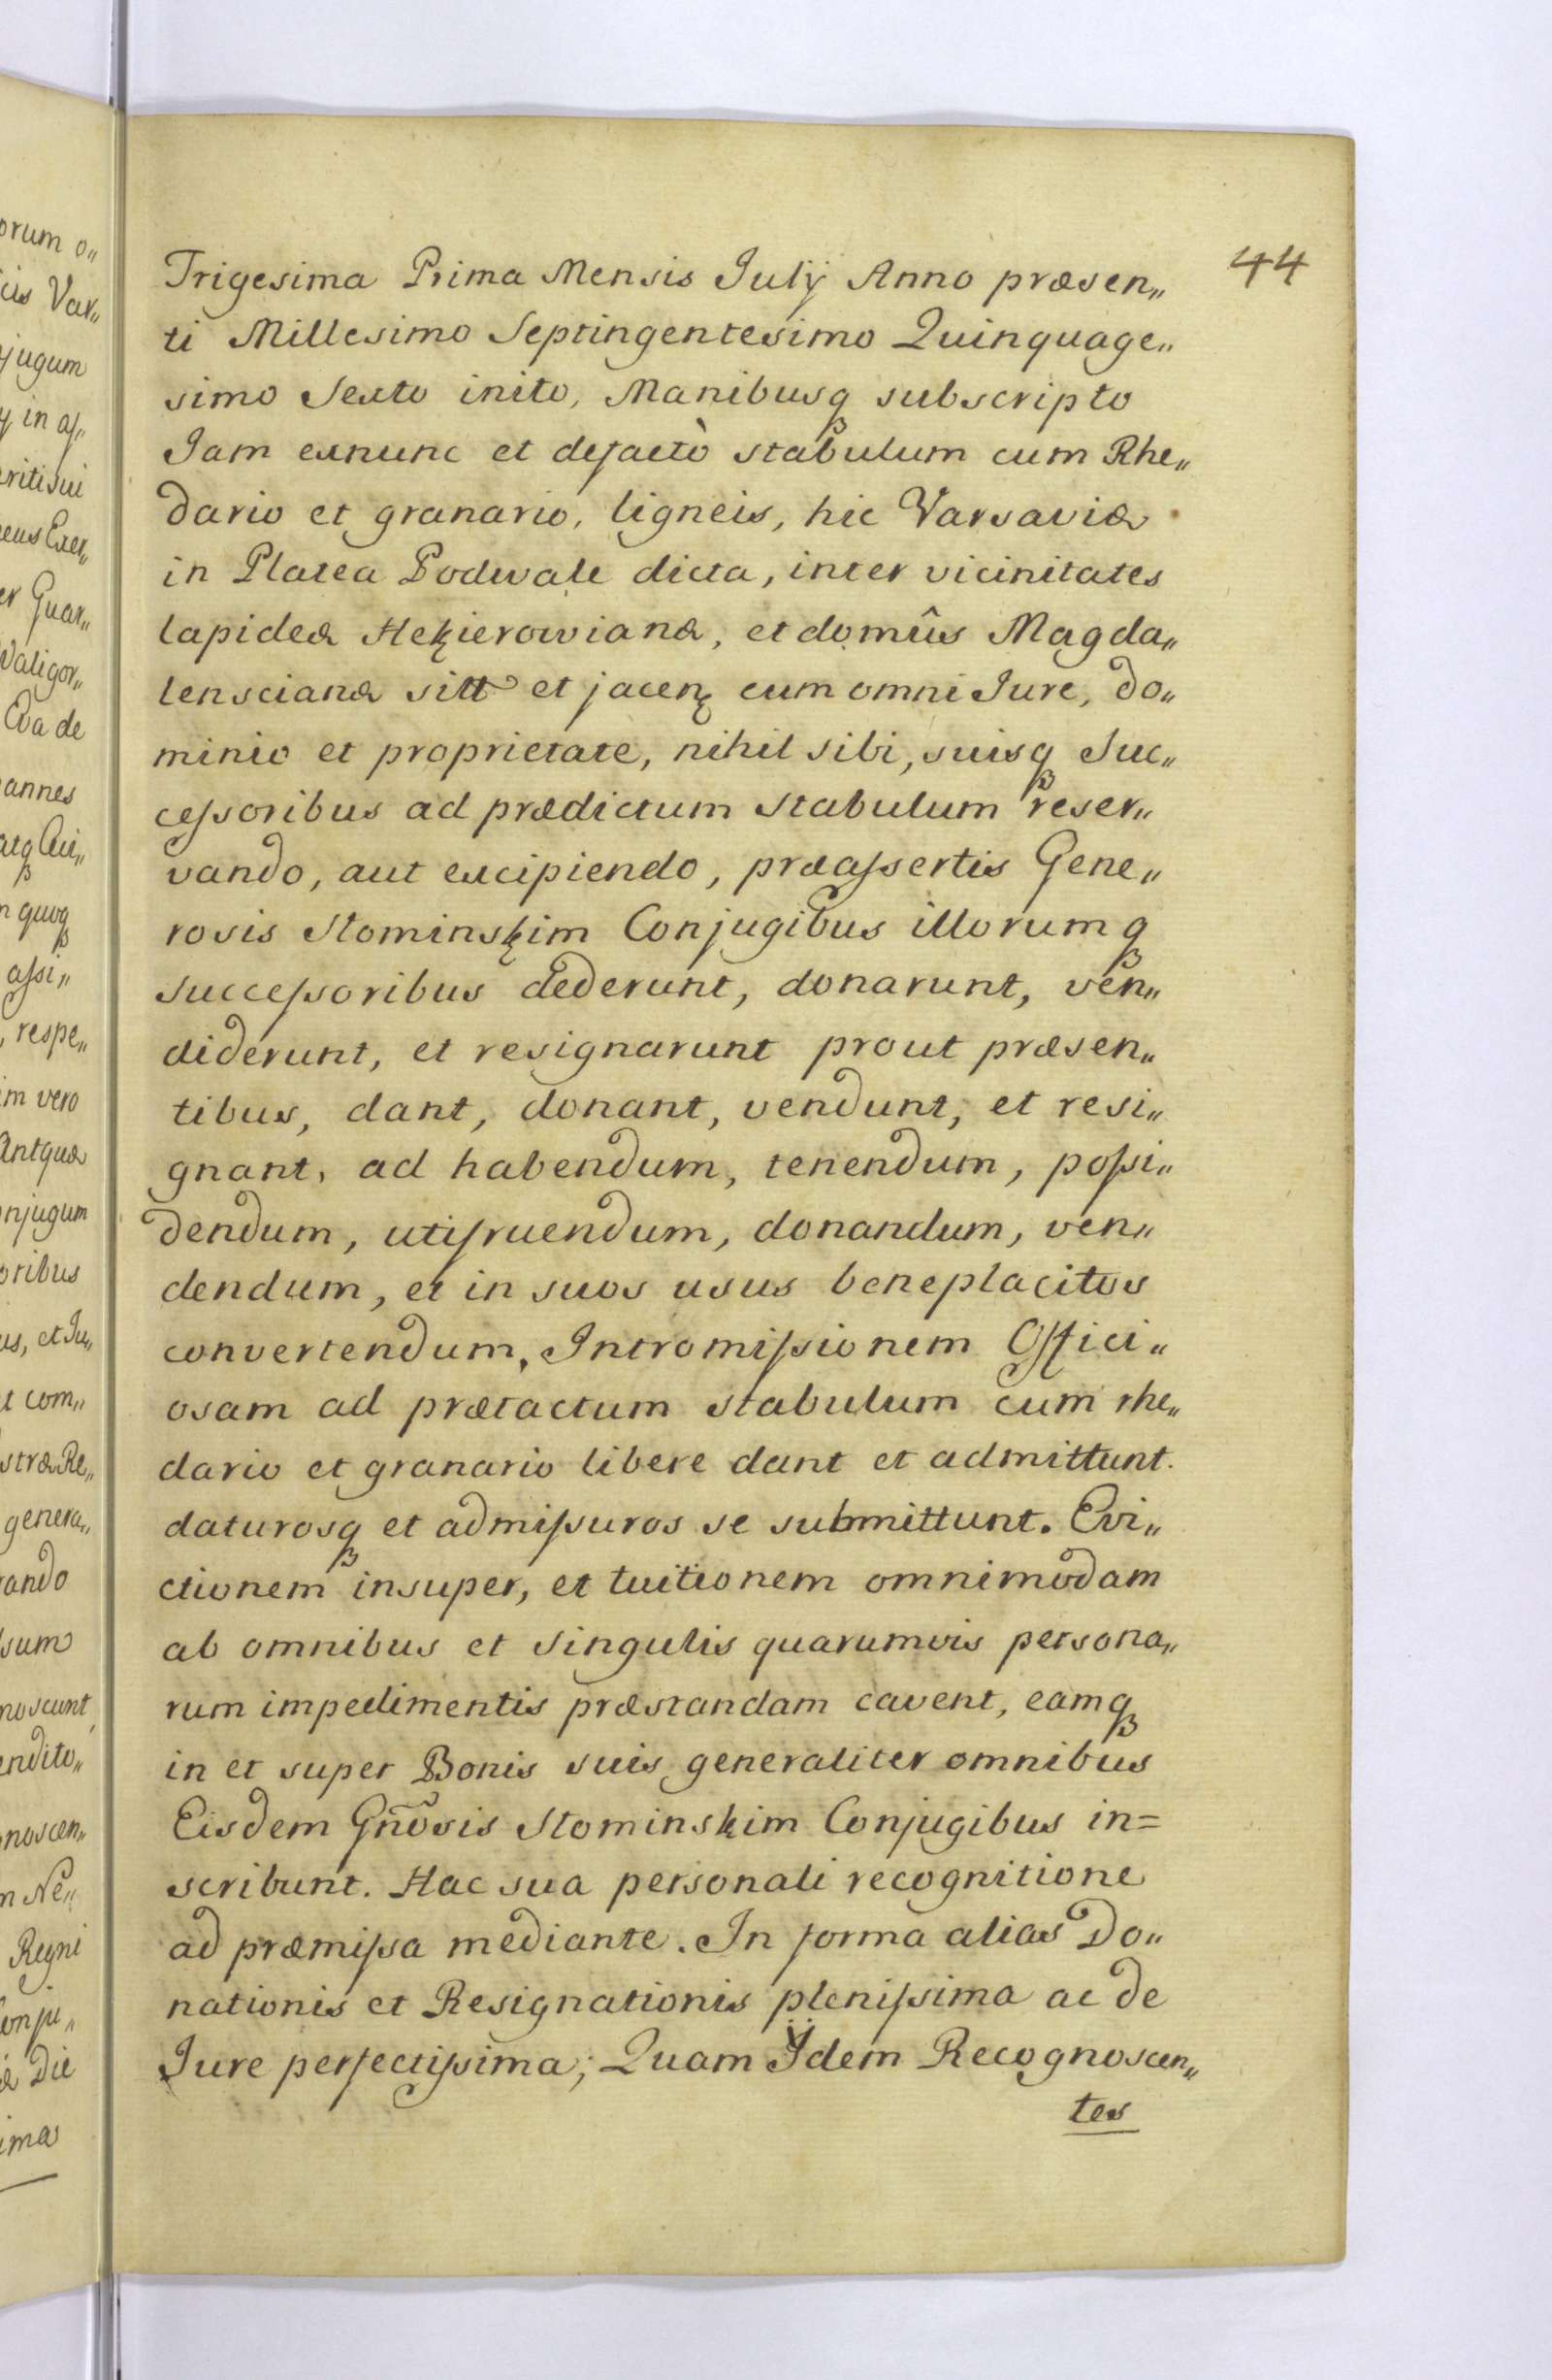 44
Trigesima Prima Mensis Julÿ Anno præsen„
ti Millesimo Septingentesimo Quinquage„
simo Sexto inito, Manibusq subscripto
Jam exnunc et defactò stabulum cum Rhe„
dario et granario, ligneis, hic Varsaviæ
in Platea Podwale dicta, inter vicinitates
lapideæ Hekierowianæ, et domûs Magda„
lenscianæ sitt et jacen cum omni Jure, do„
minio et proprietate, nihil sibi, suisq Suc„
cessoribus ad prædictum stabulum reser„
vando, aut excipiendo, præassertis Gene„
rosis Slominskim Conjugibus illorumq
successoribus dederunt, donarunt, ven„
diderunt, et resignarunt prout præsen„
tibus, dant, donant, vendunt, et resi„
gnant, ad habendum, tenendum, possi„
dendum, utifruendum, donandum, ven„
dendum, et in suos usus beneplacitos
convertendum, Intromissionem Offici„
osam ad prætactum stabulum cum rhe„
dario et granario libere dant et admittunt.
daturosq et admissuros se submittunt. Evi„
ctionem insuper, et tuitionem omnimodam
ab omnibus et singulis quarumvis persona„
rum impedimentis præstandam cavent, eamq
in et super Bonis suis generaliter omnibus
Eisdem Gñosis Slominskim Conjugibus in=
scribunt. Hac sua personali recognitione
ad præmissa mediante. In forma alias Do„
nationis et Resignationis plenissima ac de
Jure perfectissima; Quam Jidem Recognoscen„
tes
orum o„
Var„
jugum
in as„
ritisui
eus Exer„
er Guar„
Waligor„
Eva de
annes
quoq
assi„
respe„
im vero
Antquæ
njugum
oribus
us, et Ju„
t com„
stræ Re„
genera„
rando
sum
noscunt
endito„
noscen„
n Ne„
Regni
Conju„
Die
ima